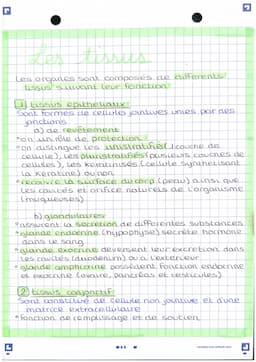 Les tissus
Les organes sont composés de différents
tissus suivant leur fonction
1) tissus épithéliaux
Sont formés de cellules jointives unies par des
jonctions
a) de revêtement
*on un rôle de protection
*on distingue les unistratifié (couche de
cellule), les pluristratifiés (plusieurs couches de
cellules), les kératinisés (cellule synthétisant
la kératine) ou non
*recouvre la surface du corp (peau) ainsi que
les cavités et orifice naturels de l'organisme
(muqueuses)
b) glandulaires
*assurent la sécrétion de différentes substances
*glande endocrine (hypophyse) sécrète hormone
dans le sang
*glande exocrine déversent leur excrétion dans
les cavités (duodénum) ou à l'extérieur
*glande amphicrine possèdent fonction endocrine
et exocrine (ovaire, pancréas et testicules)
2) tissus conjonctif
Sont constitué de cellule non jointive et d'une
matrice extracellulaire
*fonction de remplissage et de soutien